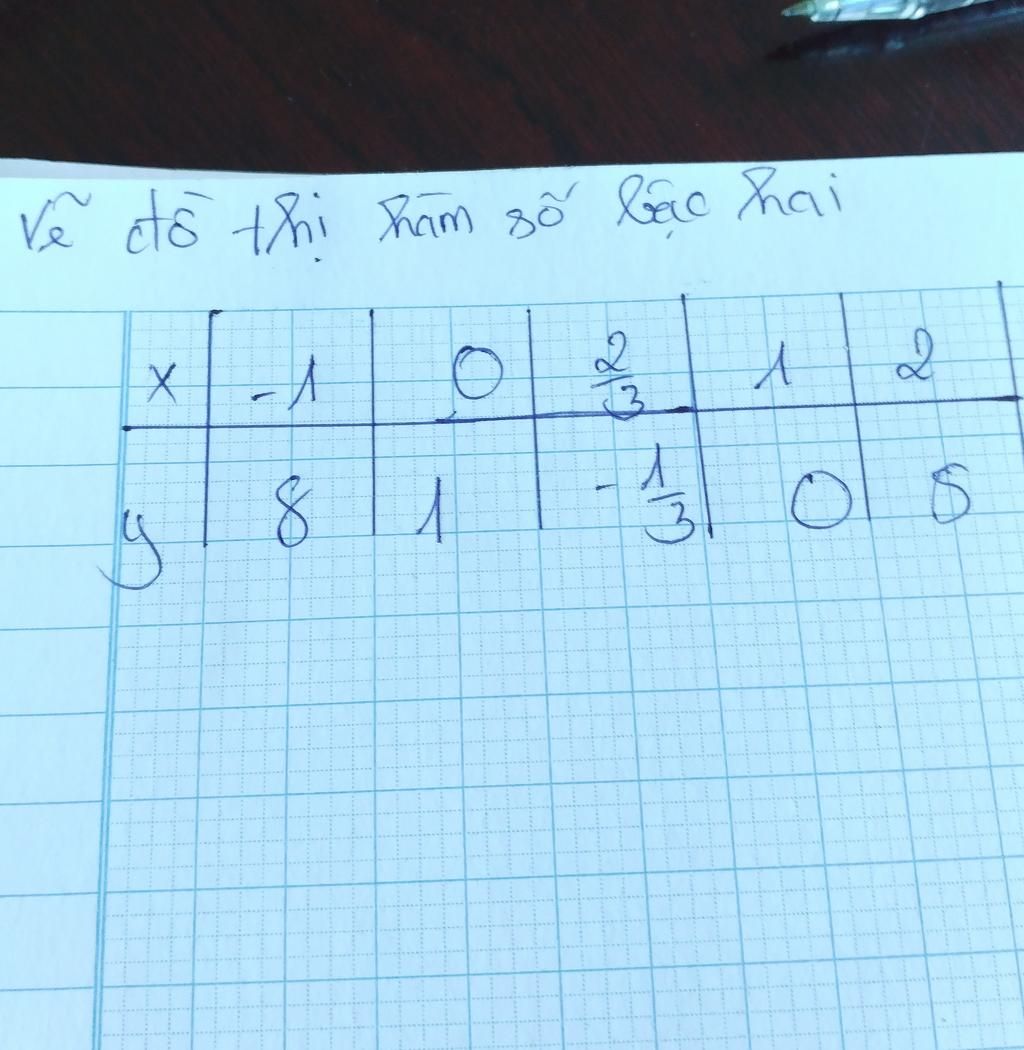 Vẽ đồ thị hàm số bậc hai
x -1 0 2/3 1 2
y 8 1 -1/3 0 5